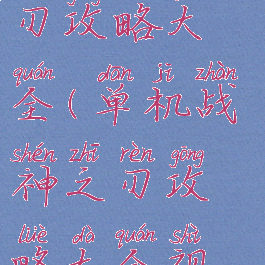 刃攻略大
quán dān jī zhàn
全(单机战
shén zhī rèn gōng
神之刃攻
lüè dà quán shì
略大全视